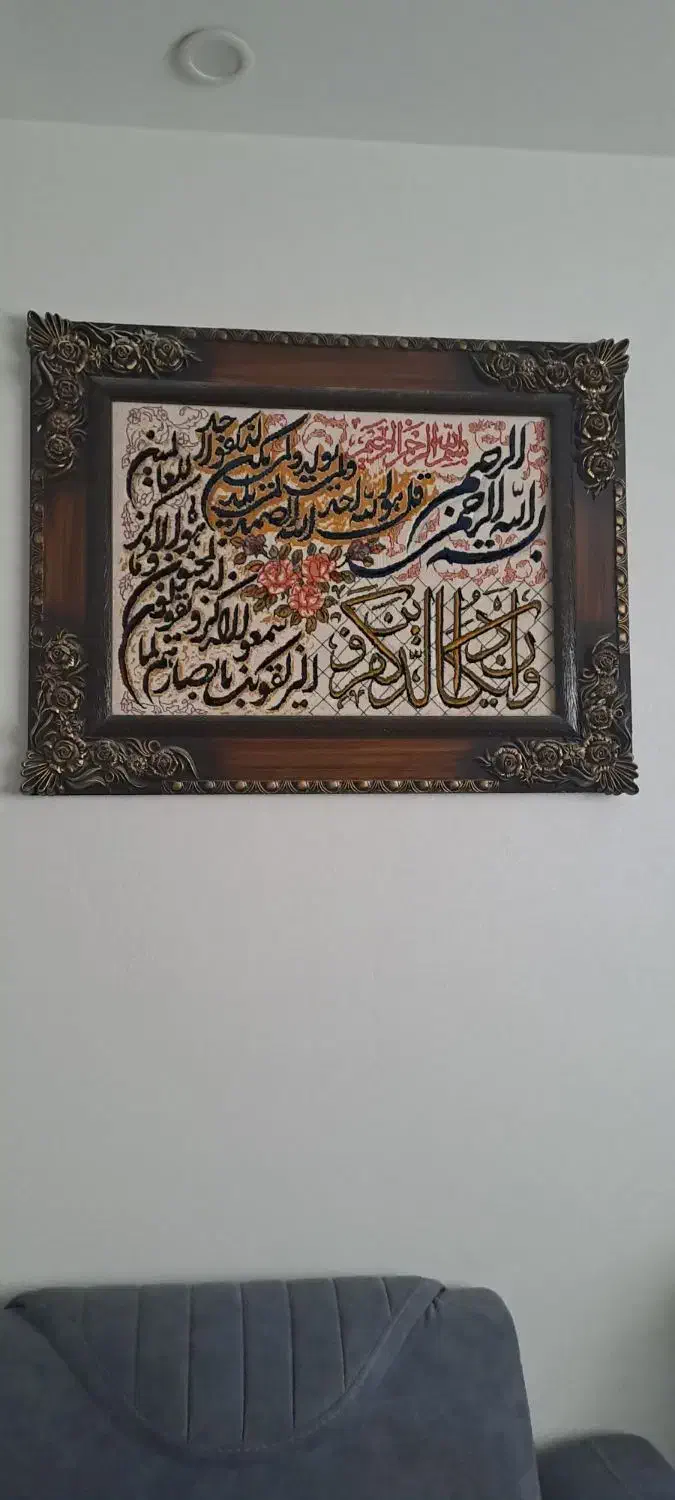 بسم الله الرحمن الرحیم
بسم الله الرحمن الرحیم
قل هو الله احد الله الصمد لم یلد
ولم یولد ولم یکن له کفوا احد
وان یکاد الذین کفروا
لیزلقونک بابصارهم لما
سمعوا الذکر و یقولون
انه لمجنون وما
هو الا ذکر
للعالمین